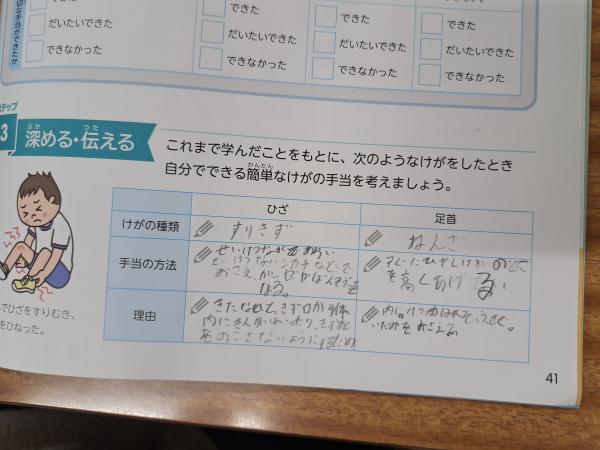 切な手当ができたか
できた
できた
できた
だいたいできた
だいたいできた
だいたいできた
だいたいできた
できなかった
できなかった
できなかった
できなかった
ステップ
3 深める・伝える
これまで学んだことをもとに、次のようなけがをしたとき
自分でできる簡単なけがの手当を考えましょう。
ひざ
足首
けがの種類
すりきず
ねんざ
手当の方法
せいけつな
せいけつなハンカチなどで
おさえ、ガーゼやばんそうこうを
はる。
すぐにひやしけがの
を高くあげる
理由
きたないと、きず口から体
内にきんが
のこさないようにするため
内出けつや
いたみをおさえる
でひざをすりむき、
をひねった。
41